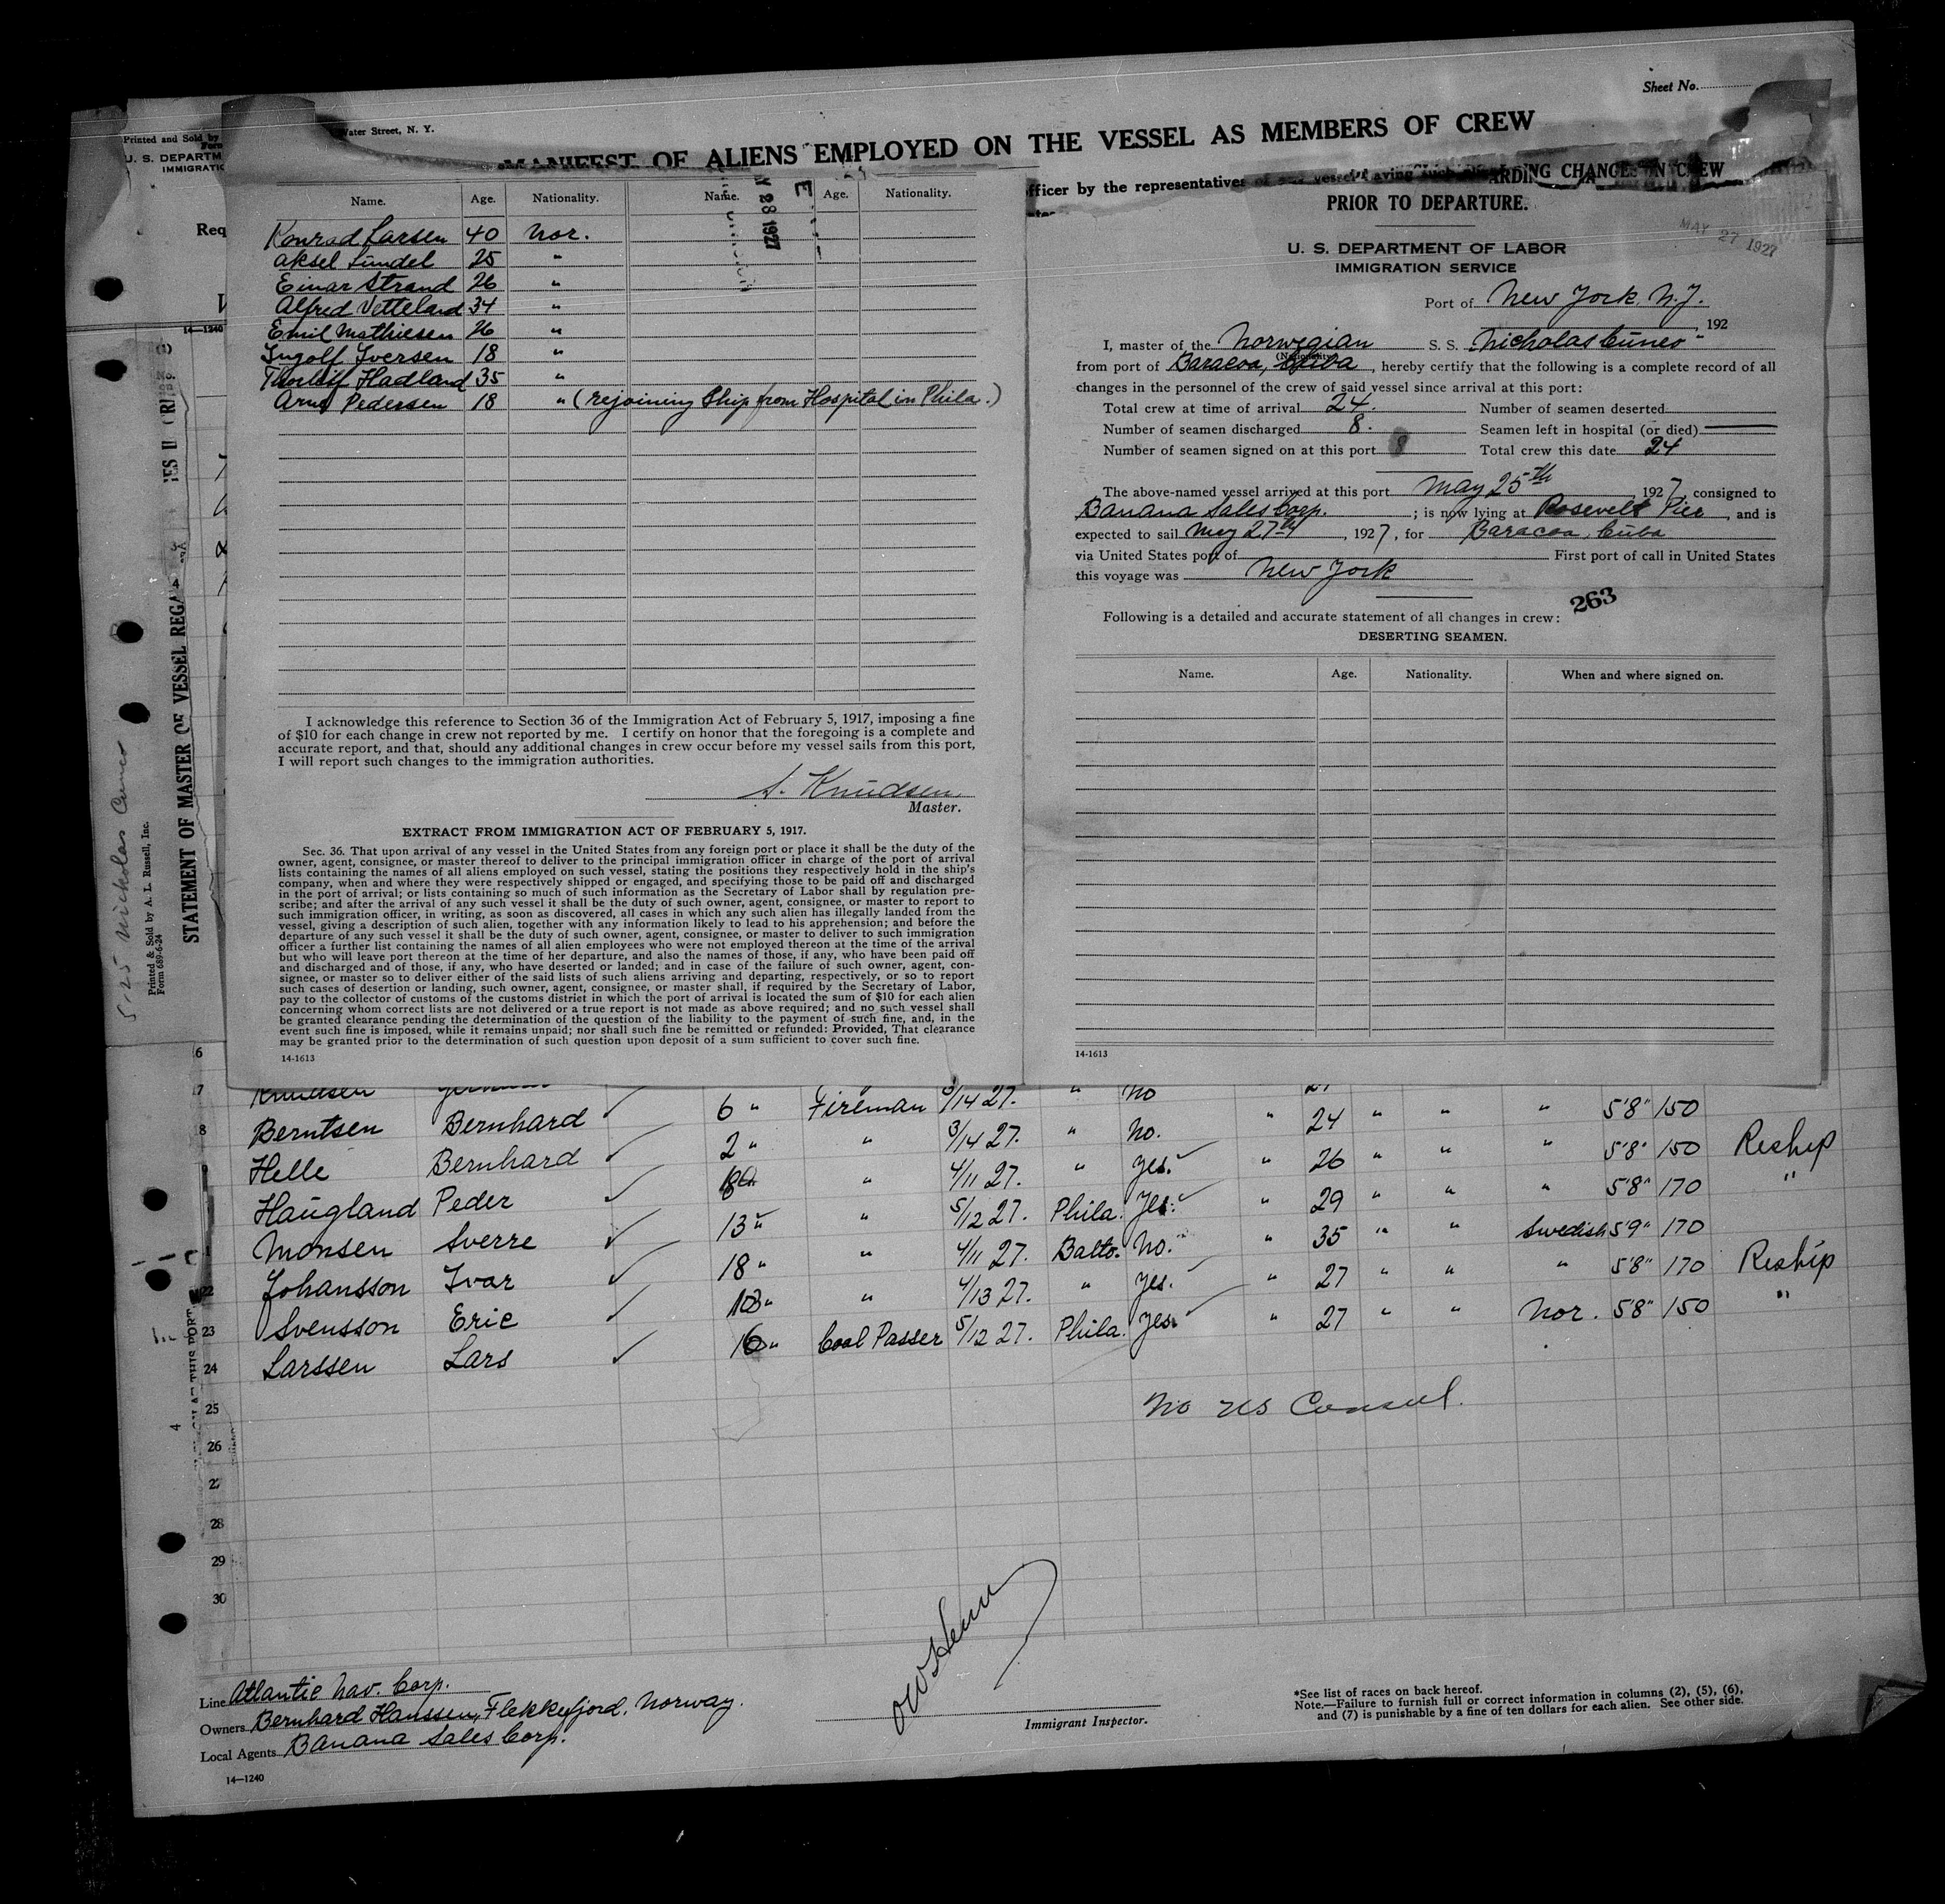 Sheet No.
Printed and Sold by
Water Street, N. Y.
U. S. DEPARTM
IMMIGRATIO
MANIFEST OF ALIENS EMPLOYED ON THE VESSEL AS MEMBERS OF CREW
Req
14-1240
Name. Age. Nationality. Name. Age. Nationality.
Y 28 1927
Konrad Larsen 40 Nor.
Aksel Lündel 25 "
Einar Strand 26 "
Alfred Vetteland 34 "
Emil Mathiesen 26 "
Ingolf Iversen 18 "
Thorleif Hadland 35 "
Arne Pedersen 18 " (rejoining Ship from Hospital in Phila.)
I acknowledge this reference to Section 36 of the Immigration Act of February 5, 1917, imposing a fine
of $10 for each change in crew not reported by me. I certify on honor that the foregoing is a complete and
accurate report, and that, should any additional changes in crew occur before my vessel sails from this port,
I will report such changes to the immigration authorities.
S. Knudsen.
Master.
EXTRACT FROM IMMIGRATION ACT OF FEBRUARY 5, 1917.
Sec. 36. That upon arrival of any vessel in the United States from any foreign port or place it shall be the duty of the
owner, agent, consignee, or master thereof to deliver to the principal immigration officer in charge of the port of arrival
lists containing the names of all aliens employed on such vessel, stating the positions they respectively hold in the ship's
company, when and where they were respectively shipped or engaged, and specifying those to be paid off and discharged
in the port of arrival; or lists containing so much of such information as the Secretary of Labor shall by regulation pre-
scribe; and after the arrival of any such vessel it shall be the duty of such owner, agent, consignee, or master to report to
such immigration officer, in writing, as soon as discovered, all cases in which any such alien has illegally landed from the
vessel, giving a description of such alien, together with any information likely to lead to his apprehension; and before the
departure of any such vessel it shall be the duty of such owner, agent, consignee, or master to deliver to such immigration
officer a further list containing the names of all alien employees who were not employed thereon at the time of the arrival
but who will leave port thereon at the time of her departure, and also the names of those, if any, who have been paid off
and discharged and of those, if any, who have deserted or landed; and in case of the failure of such owner, agent, con-
signee, or master so to deliver either of the said lists of such aliens arriving and departing, respectively, or so to report
such cases of desertion or landing, such owner, agent, consignee, or master shall, if required by the Secretary of Labor,
pay to the collector of customs of the customs district in which the port of arrival is located the sum of $10 for each alien
concerning whom correct lists are not delivered or a true report is not made as above required; and no such vessel shall
be granted clearance pending the determination of the question of the liability to the payment of such fine, and, in the
event such fine is imposed, while it remains unpaid; nor shall such fine be remitted or refunded: Provided, That clearance
may be granted prior to the determination of such question upon deposit of a sum sufficient to cover such fine.
14-1613
officer by the representatives
ARDING CHANGES IN CREW
PRIOR TO DEPARTURE.
MAY 27 1927
U. S. DEPARTMENT OF LABOR
IMMIGRATION SERVICE
Port of New York, N.Y.
, 192
I, master of the Norwegian S. S. "Nicholas Cuneo"
(Nationality)
from port of Baracoa, Cuba, hereby certify that the following is a complete record of all
changes in the personnel of the crew of said vessel since arrival at this port:
Total crew at time of arrival 24. Number of seamen deserted
Number of seamen discharged 8. Seamen left in hospital (or died)
Number of seamen signed on at this port 8 Total crew this date 24
The above-named vessel arrived at this port May 25th, 1927, consigned to
Banana Sales Corp.; is now lying at Rosevelt Pier, and is
expected to sail May 27th, 1927, for Baracoa, Cuba
via United States port of First port of call in United States
this voyage was New York
263
Following is a detailed and accurate statement of all changes in crew:
DESERTING SEAMEN.
Name. Age. Nationality. When and where signed on.
14-1613
5-25 Nicholas Cuneo
Printed & Sold by A. L. Russell, Inc.
Form 689-6-24
STATEMENT OF MASTER OF VESSEL REGA
Knudsen 6 " Fireman 3/14 27. " No 27
Berntsen Bernhard 2 " " 3/14 27. " No. " 24 " " " 5'8" 150
Helle Bernhard " 4/11 27. " yes. " 26 " " " 5'8" 150 Reship
Haugland Peder 13 " " 5/12 27. Phila. Yes. " 29 " " " 5'8" 170 "
Monsen Sverre 18 " " 4/11 27. Balto. No. " 35 " " Swedish 5'9" 170
Johansson Ivar " 4/13 27. " yes. " 27 " " " 5'8" 170 Reship
Svensson Eric Coal Passer 5/12 27. Phila. yes. " 27 " " Nor. 5'8" 150 "
Larssen Lars
23
24
25
26
28
29
30
No US Consul.
Line Atlantic Nav. Corp.
Owners Bernhard Hanssen, Flekkefjord, Norway.
Local Agents Banana Sales Corp.
14-1240
Immigrant Inspector.
*See list of races on back hereof.
Note.—Failure to furnish full or correct information in columns (2), (5), (6),
and (7) is punishable by a fine of ten dollars for each alien. See other side.